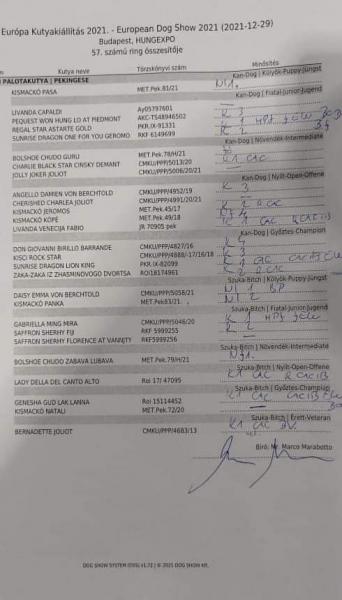 Európa Kutyakiállítás 2021. - European Dog Show 2021 (2021-12-29)
Budapest, HUNGEXPO
57. számú ring összesítője
Kutya neve Törzskönyvi szám Minősítés
PALOTAKUTYA | PEKINGESE Kan-Dog | Kölyök-Puppy-Jüngst
KISMACKÓ PASA MET.Pek.81/21 NI1.
Kan-Dog | Fiatal-Junior-Jugend
LIVANDA CAPALDI Ay05797601 K 3
PEQUEST WON HUNG LO AT PIEDMONT AKC-TS48946502 K 1 HPJ
REGAL STAR ASTARTE GOLD PKR.IX-91331 K
SUNRISE DRAGON ONE FOR YOU GEROMO RKF 6149699 K 2
Kan-Dog | Növendék-Intermediate
BOLSHOE CHUDO GURU MET.Pek.78/H/21
CHARLIE BLACK STAR CINSKY DEMANT CMKU/PPP/5013/20 K1 CAC
JOLLY JOKER JOLIOT CMKU/PPP/5006/20/21
Kan-Dog | Nyílt-Open-Offene
ANGELLO DAMIEN VON BERCHTOLD CMKU/PPP/4952/19 K 3
CHERISHED CHARLEA JOLIOT CMKU/PPP/4991/20/21 K 2
KISMACKÓ JEROMOS MET.Pek.45/17 K 4
KISMACKÓ KOPÉ MET.Pek.49/18
LIVANDA VENECIJA FABIO JR 70905 pek K 1 CAC
Kan-Dog | Győztes-Champion
DON GIOVANNI BIRILLO BARRANDE CMKU/PPP/4827/16 K 4
KISCI ROCK STAR CMKU/PPP/4888/-17/16/18 K 3
SUNRISE DRAGON LION KING PKR.IX-82099 K CAC
ZAKA-ZAKA IZ ZHASMINOVOGO DVORTSA ROI18174961 K 2
Szuka-Bitch | Kölyök-Puppy-Jüngst
DAISY EMMA VON BERCHTOLD CMKU/PPP/5056/21 NI 1 BP
KISMACKÓ PANKA MET.Pek83/21. NI 2
Szuka-Bitch | Fiatal-Junior-Jugend
GABRIELLA MING MIRA CMKU/PPP/5046/20 K 1 HPJ
SAFFRON SHERHY FIJI RKF 5999255 —
SAFFRON SHERHY FLORENCE AT VANNITY RKF5999256 K 2
Szuka-Bitch | Növendék-Intermediate
BOLSHOE CHUDO ZABAVA LUBAVA MET.Pek.79/H/21
Szuka-Bitch | Nyílt-Open-Offene
LADY DELLA DEL CANTO ALTO Roi 17/ 47095 K1 CAC
Szuka-Bitch | Győztes-Champion
GENESHA GUD LAK LANNA Roi 15114452 K1 CAC
KISMACKÓ NATALI MET.Pek.72/20 —
Szuka-Bitch | Érett-Veteran
BERNADETTE JOLIOT CMKU/PPP/4683/13 K1
Bíró: Mr. Marco Marabotto
DOG SHOW SYSTEM (DSS) v1.72 | © 2021 DOG SHOW Kft.